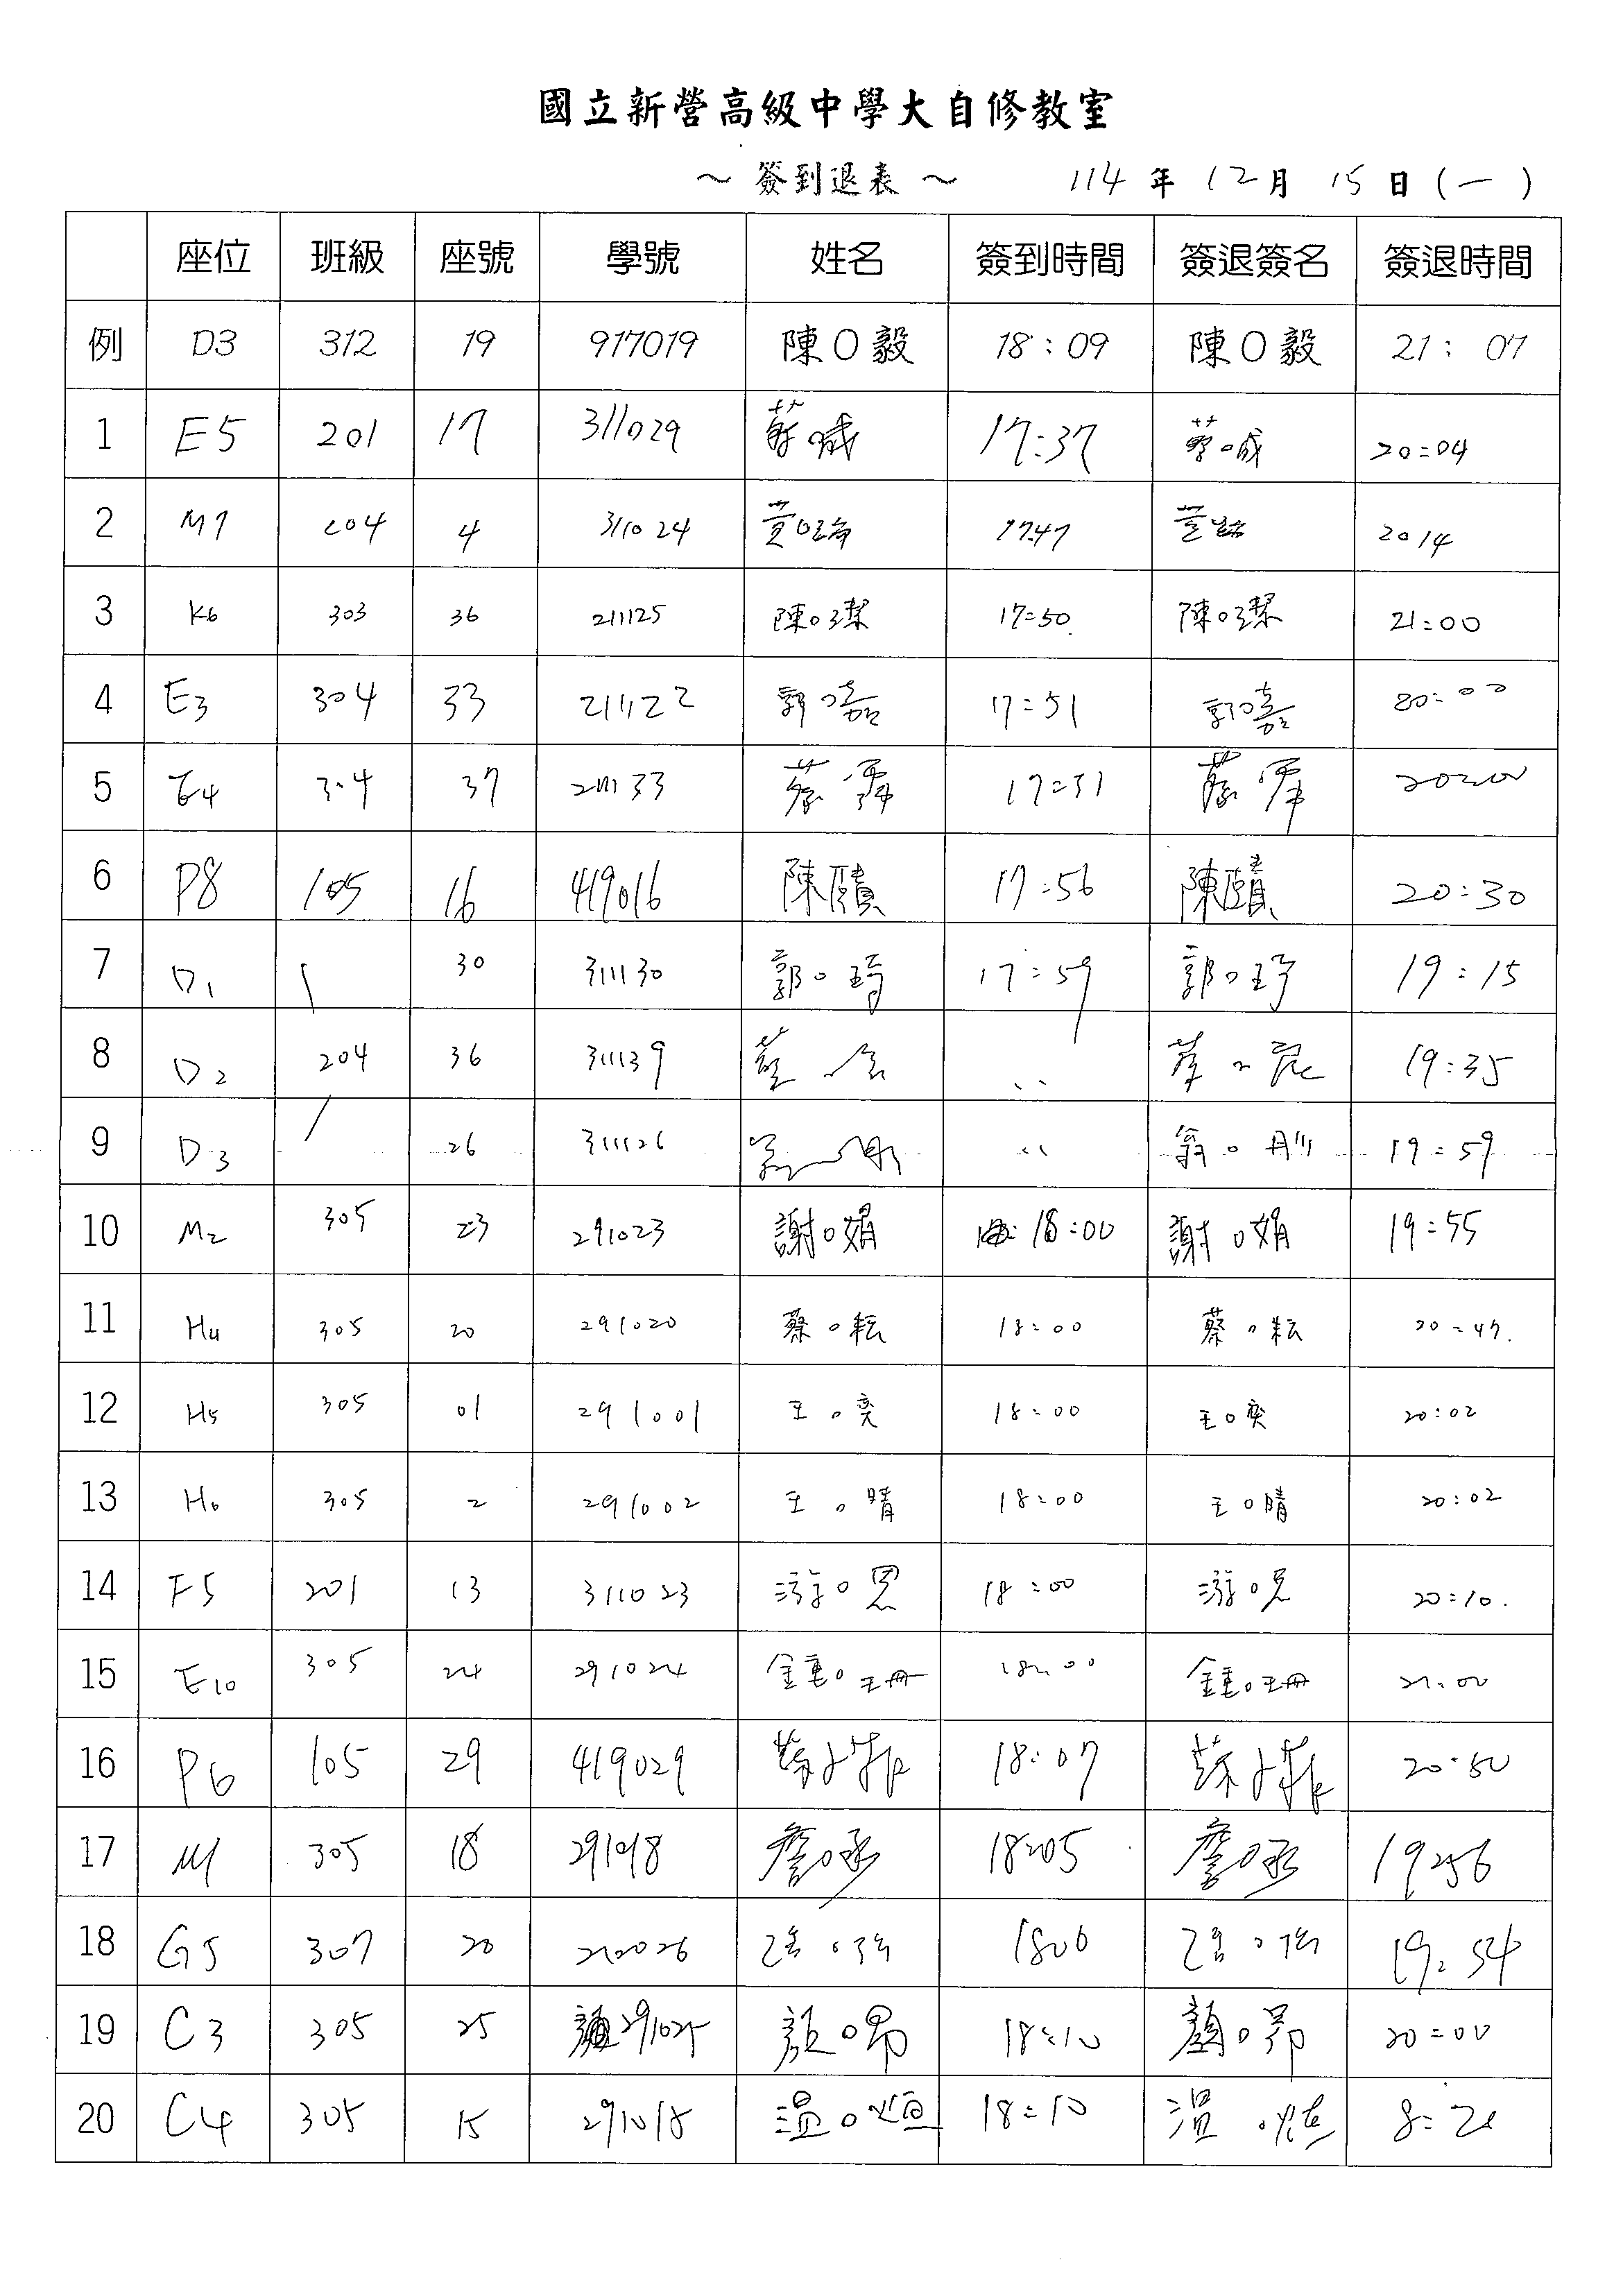 國立新營高級中學大自修教室
～ 簽到退表 ～ 114 年 12 月 15 日 (一)
座位 班級 座號 學號 姓名 簽到時間 簽退簽名 簽退時間
例 D3 312 19 917019 陳O毅 18:09 陳O毅 21:07
1 E5 201 17 311029 17:37 20:04
2 M7 204 4 311024 黃 1747 2014
3 K6 303 36 211125 陳O潔 17:50 陳O潔 21:00
4 E3 304 33 211122 郭O嘉 17:51 郭O嘉 80:00
5 E4 304 37 211133 蔡 17:51 蔡
6 P8 105 16 419016 陳賾 17:56 陳賾 20:30
7 D1 30 311130 郭O琦 17:59 郭O琦 19:15
8 D2 204 36 311139 19:35
9 D3 26 311126 翁O彤 19:59
10 M2 305 23 291023 謝O娟 18:00 謝O娟 19:55
11 H4 305 20 291020 蔡O耘 18:00 蔡O耘 20:47.
12 H5 305 01 291001 王O奕 18:00 王O奕 20:02
13 H6 305 2 291002 王O晴 18:00 王O晴 20:02
14 F5 201 13 311023 游O恩 18:00 游O恩 20:10.
15 E10 305 24 291024 鍾O珊 18:00 鍾O珊 21:00
16 P6 105 29 419029 18:07 20:50
17 M1 305 18 291018 詹O承 18:05 詹O承 19:56
18 G5 307 20 210026 1806 19:54
19 C3 305 25 291025 顏O昂 18:10 顏O昂 20:00
20 C4 305 15 291018 溫O 18:10 溫O 8:21